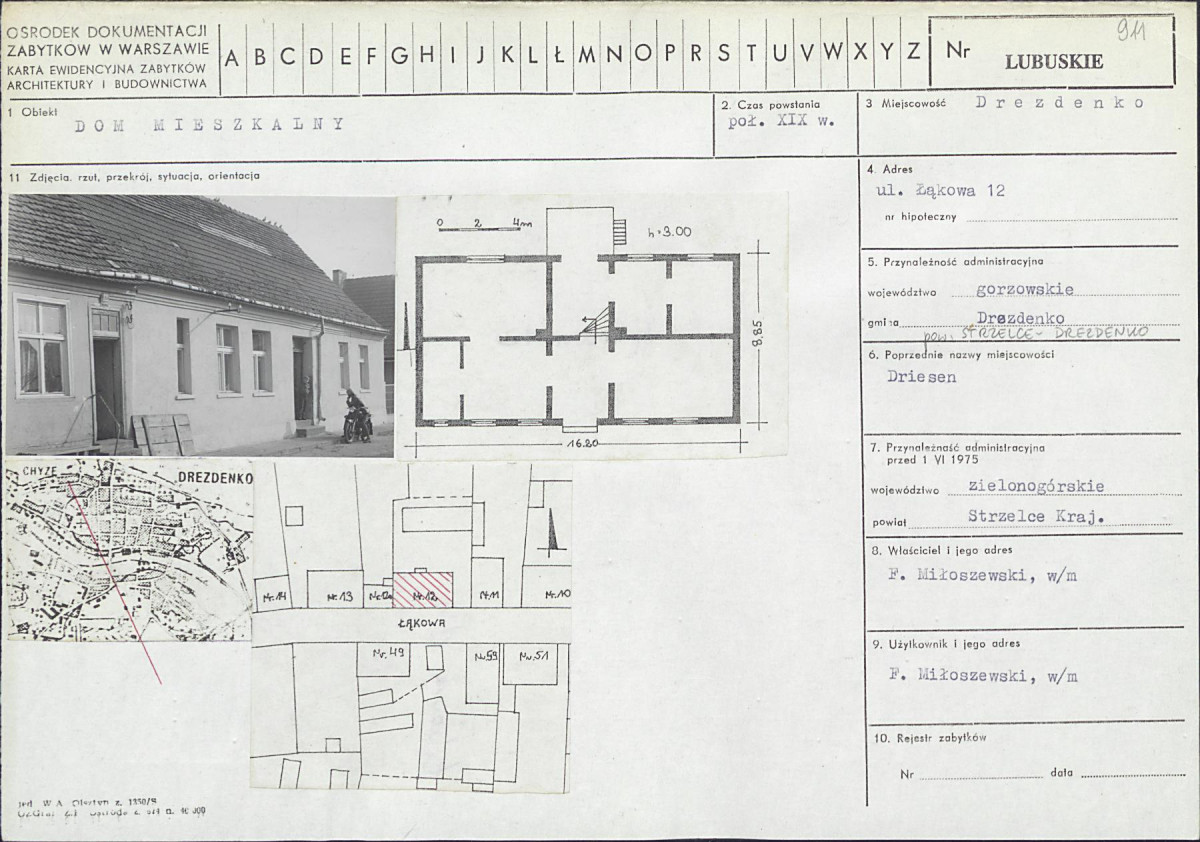 OŚRODEK DOKUMENTACJI
ZABYTKÓW W WARSZAWIE
KARTA EWIDENCYJNA ZABYTKÓW
ARCHITEKTURY I BUDOWNICTWA
A B C D E F G H I J K L Ł M N O P R S T U V W X Y Z
Nr
911
LUBUSKIE
1 Obiekt
DOM MIESZKALNY
2. Czas powstania
poł. XIX w.
3 Miejscowość
Drezdenko
11 Zdjęcia. rzut, przekrój, sytuacja, orientacja
4. Adres
ul. Łąkowa 12
nr hipoteczny
5. Przynależność administracyjna
województwo gorzowskie
gmina Drezdenko
pow. STRZELCE - DREZDENKO
6. Poprzednie nazwy miejscowości
Driesen
7. Przynależność administracyjna
przed 1 VI 1975
województwo zielonogórskie
powiat Strzelce Kraj.
8. Właściciel i jego adres
F. Miłoszewski, w/m
9. Użytkownik i jego adres
F. Miłoszewski, w/m
10. Rejestr zabytków
Nr data
0 2 4m
h=3.00
8.85
16.20
CHYŻE
DREZDENKO
Nr.14
Nr.13
Nr.12a
Nr.12
Nr.11
Nr.10
ŁĄKOWA
Nr.49
Nr.59
Nr.51